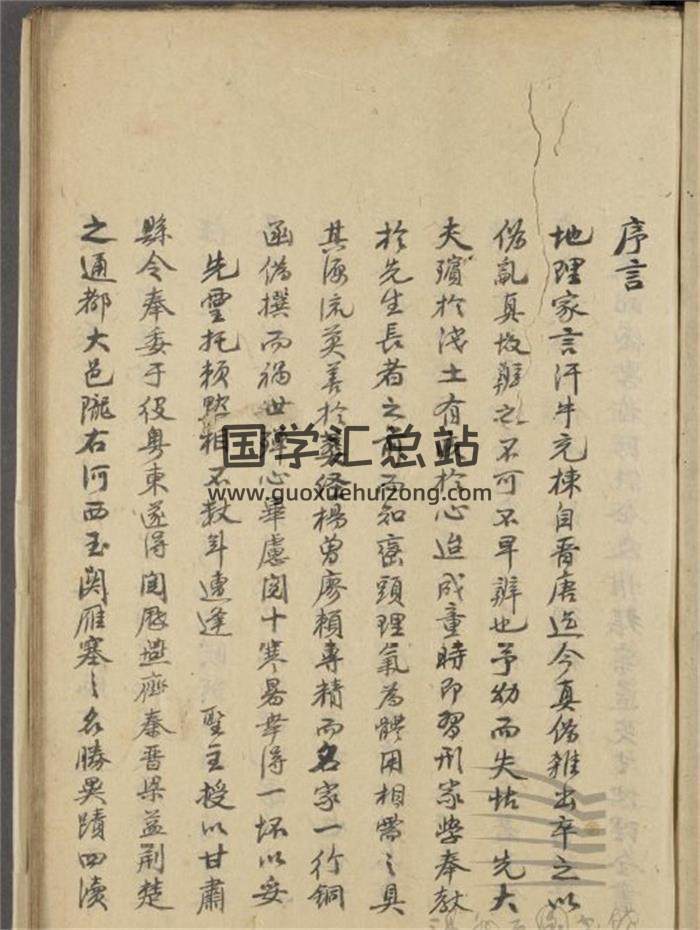 序言
地理家言汗牛充棟自晋唐迄今真偽雜出卒之以
偽亂真故辨之不可不早辨也予幼而失怙 先大
夫殯於淺土有 於心迨成童時即習形家學奉教
於先生長者之前而知巒頭理氣為體用相需之具
其源流莫善於 經楊曾廖賴專精而名家一行銅
函偽撰而禍世殫心畢慮閱十寒暑幸得一坏以妥
先靈托賴默相不数年連逢 聖主授以甘肅
縣令奉委于役粤東遂得閱歷燕齊秦晋梁益荆楚
之通都大邑隴右河西玉関雁塞之名勝異蹟四瀆
国学汇总站
www.guoxuehuizong.com